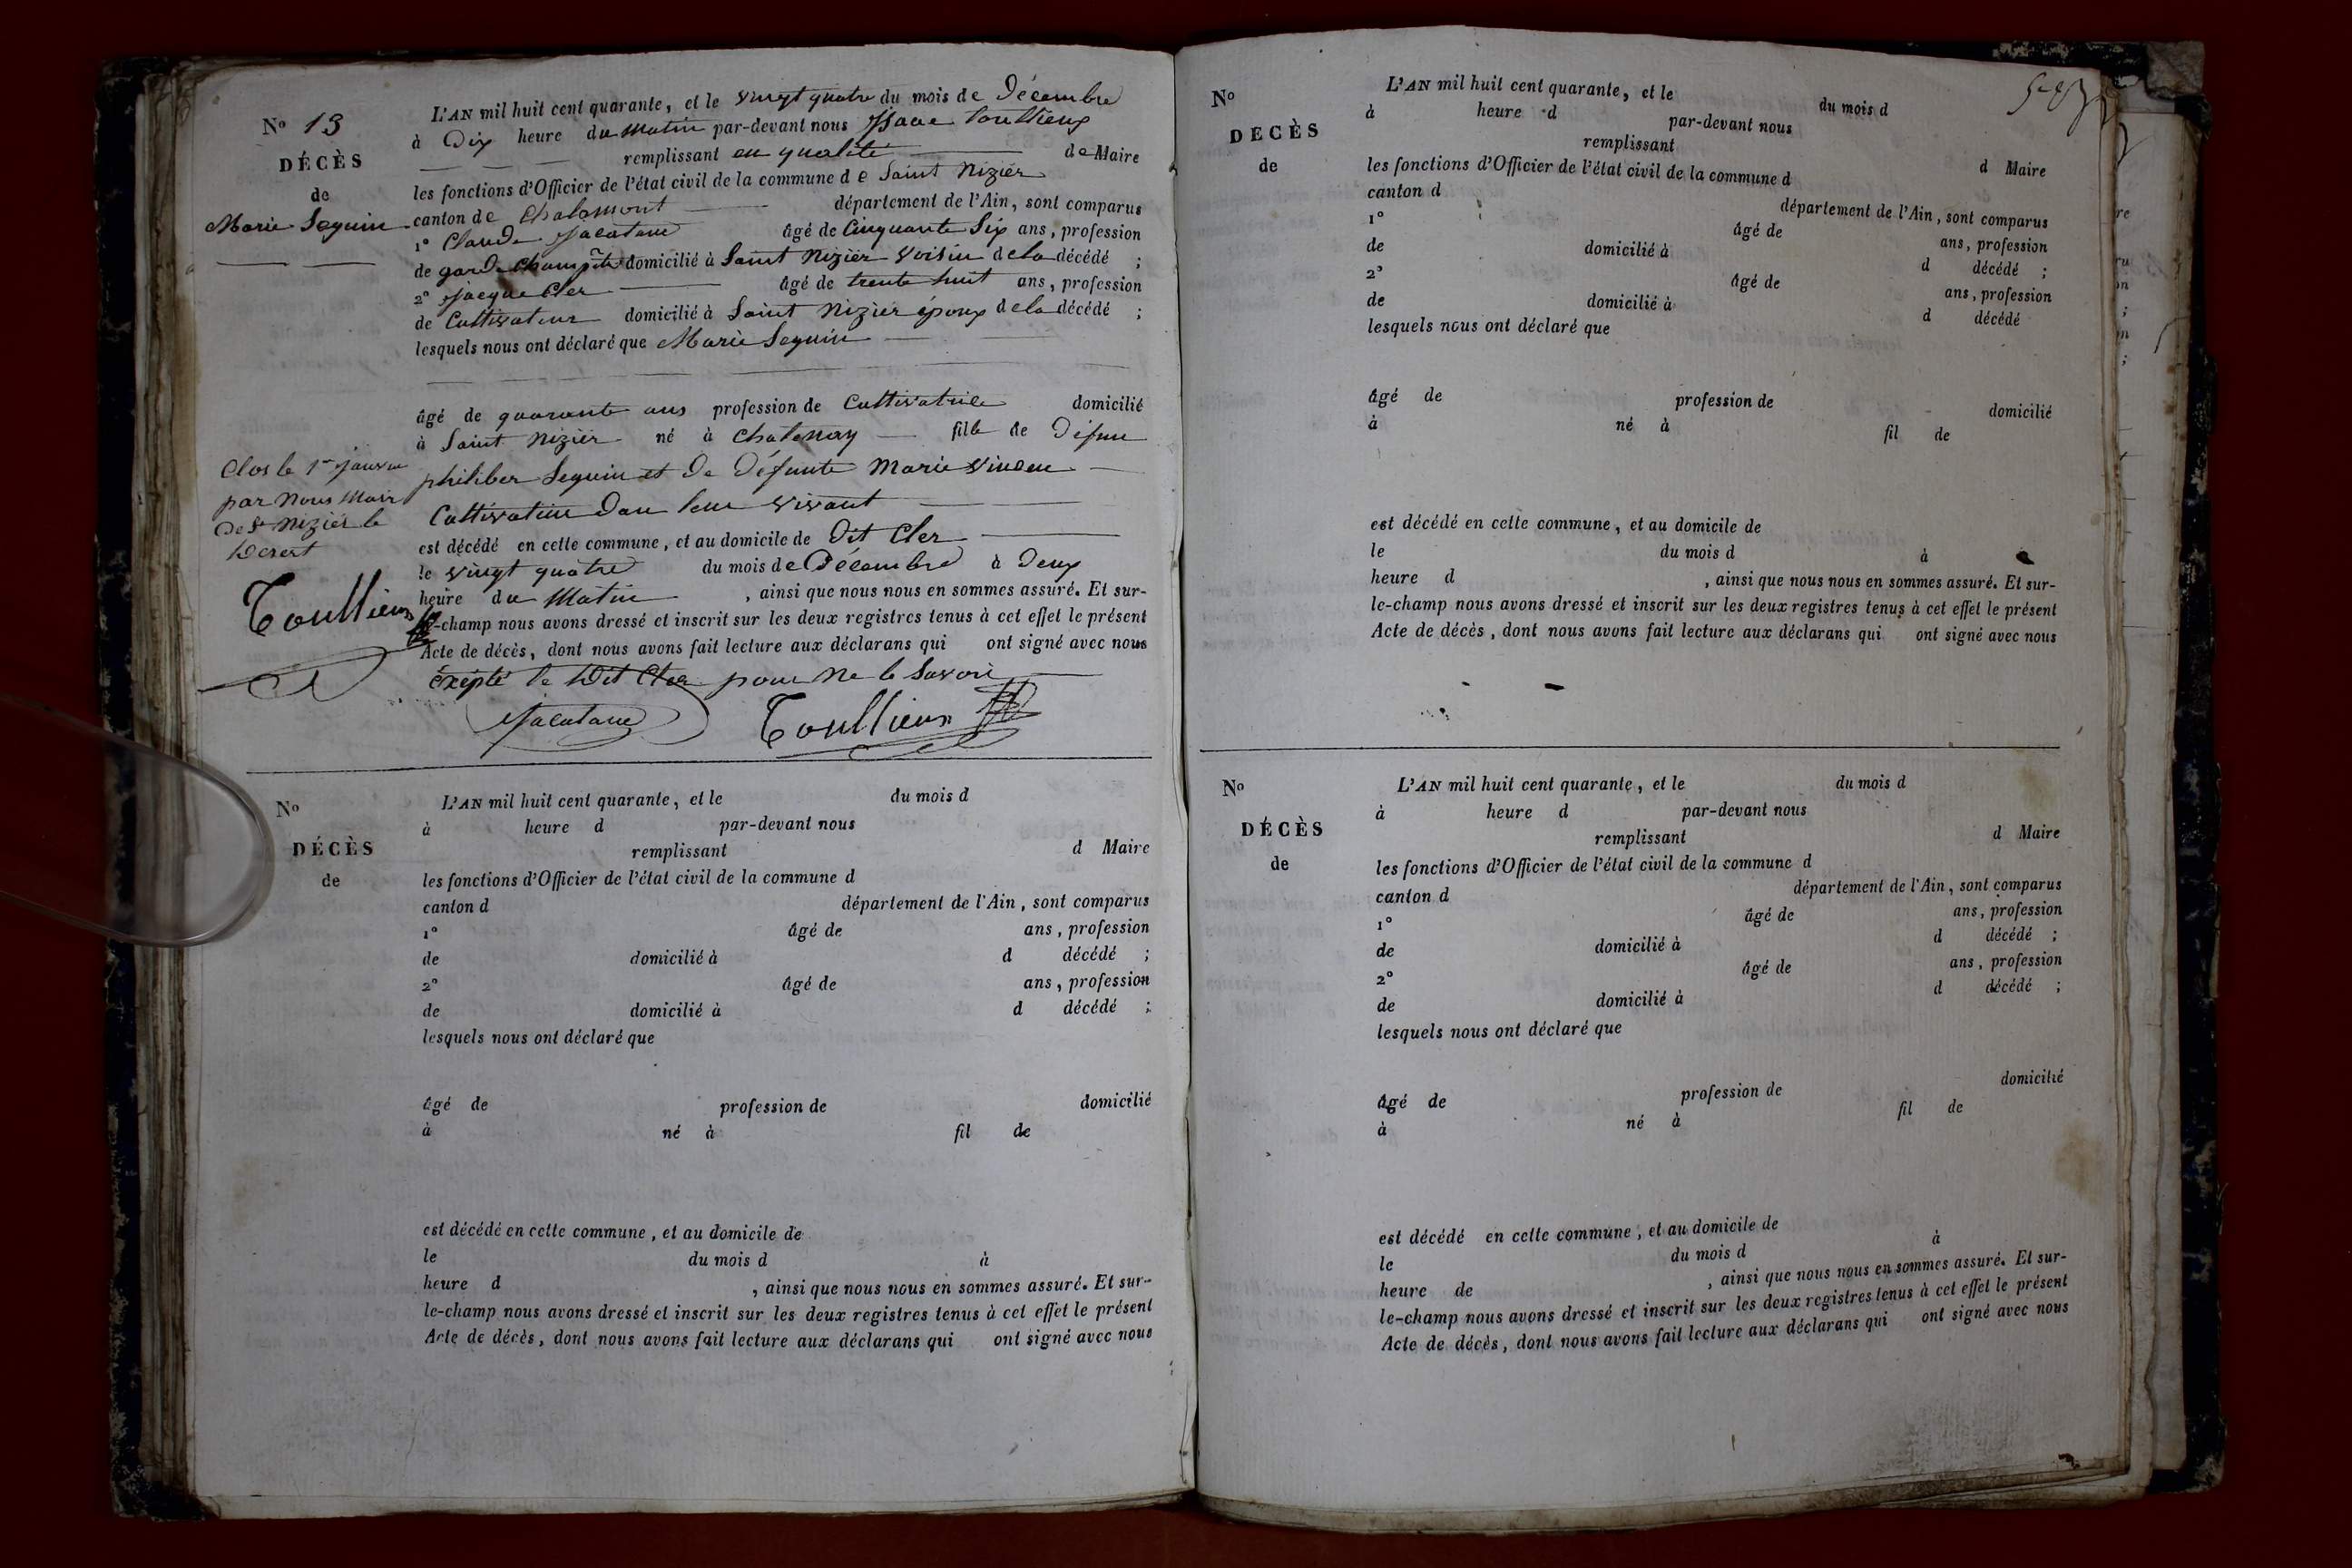 N° 13
DÉCÈS
de
Marie Seguin
L'AN mil huit cent quarante, et le vingt quatre du mois de Décembre
à Dix heure du Matin par-devant nous Isaac Toullieux
remplissant en qualité de Maire
les fonctions d'Officier de l'état civil de la commune de Saint Nizier
canton de Chalamont département de l'Ain, sont comparus
1° Claude Jacatane âgé de Cinquante Six ans, profession
de garde champêtre domicilié à Saint Nizier voisin de la décédé ;
2° Jacque Cler âgé de trente huit ans, profession
de Cultivateur domicilié à Saint Nizier époux de la décédé ;
lesquels nous ont déclaré que Marie Seguin
âgé de quarante ans profession de Cultivatrice domicilié
à Saint Nizier né à Chatenay fille de Défun
philiber Seguin et de Défunte Marie
Cultivateur dan leur vivant
est décédé en cette commune, et au domicile de Dit Cler
le vingt quatre du mois de Décembre à Deux
heure du Matin , ainsi que nous nous en sommes assuré. Et sur-
le-champ nous avons dressé et inscrit sur les deux registres tenus à cet effet le présent
Acte de décès, dont nous avons fait lecture aux déclarans qui ont signé avec nous
éxépté le Dit Cler pour ne le Savoir
Jacatane Toullieux
Clos le 1er Janvier
par Nous Mair
De St Nizier le
Désert
Toullieux
N°
DÉCÈS
de
L'AN mil huit cent quarante, et le du mois d
à heure d par-devant nous
remplissant d Maire
les fonctions d'Officier de l'état civil de la commune d
canton d département de l'Ain, sont comparus
1° âgé de ans, profession
de domicilié à d décédé ;
2° âgé de ans, profession
de domicilié à d décédé ;
lesquels nous ont déclaré que
âgé de profession de domicilié
à né à fil de
est décédé en cette commune, et au domicile de
le du mois d à
heure d , ainsi que nous nous en sommes assuré. Et sur-
le-champ nous avons dressé et inscrit sur les deux registres tenus à cet effet le présent
Acte de décès, dont nous avons fait lecture aux déclarans qui ont signé avec nous
N°
DECÈS
de
L'AN mil huit cent quarante, et le du mois d
à heure d par-devant nous
remplissant d Maire
les fonctions d'Officier de l'état civil de la commune d
canton d département de l'Ain, sont comparus
1° âgé de ans, profession
de domicilié à d décédé ;
2° âgé de ans, profession
de domicilié à d décédé
lesquels nous ont déclaré que
âgé de profession de domicilié
à né à fil de
est décédé en cette commune, et au domicile de
le du mois d à
heure d , ainsi que nous nous en sommes assuré. Et sur-
le-champ nous avons dressé et inscrit sur les deux registres tenus à cet effet le présent
Acte de décès, dont nous avons fait lecture aux déclarans qui ont signé avec nous
N°
DÉCÈS
de
L'AN mil huit cent quarante, et le du mois d
à heure d par-devant nous
remplissant d Maire
les fonctions d'Officier de l'état civil de la commune d
canton d département de l'Ain, sont comparus
1° âgé de ans, profession
de domicilié à d décédé ;
2° âgé de ans, profession
de domicilié à d décédé ;
lesquels nous ont déclaré que
âgé de profession de domicilié
à né à fil de
est décédé en cette commune, et au domicile de
le du mois d à
heure de , ainsi que nous nous en sommes assuré. Et sur-
le-champ nous avons dressé et inscrit sur les deux registres tenus à cet effet le présent
Acte de décès, dont nous avons fait lecture aux déclarans qui ont signé avec nous